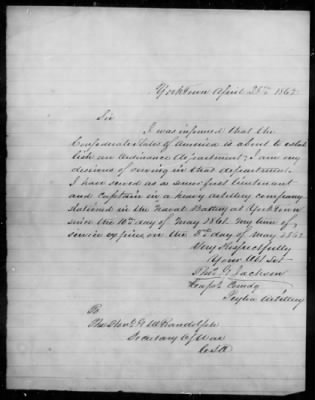 Yorktown April 25th 1862
Sir
I was infirmed that the
Confederate States of America is about to establ
lish an ordinance department; I am very
desirous of serving in that department.
I have served as a senr first lieutenant
and Captain in a heavy artillery company
stationed in the Naval Battery at Yorktown
since the 10th day of May 1861. My time of
service expires on the 8th day of May 1862
Very Respectfully
Your Obt Svt
Thos. G. Jackson
Capt. Comdg
Artillery
To
The Hon. G. W. Randolph
Secretary of War
C.S.A